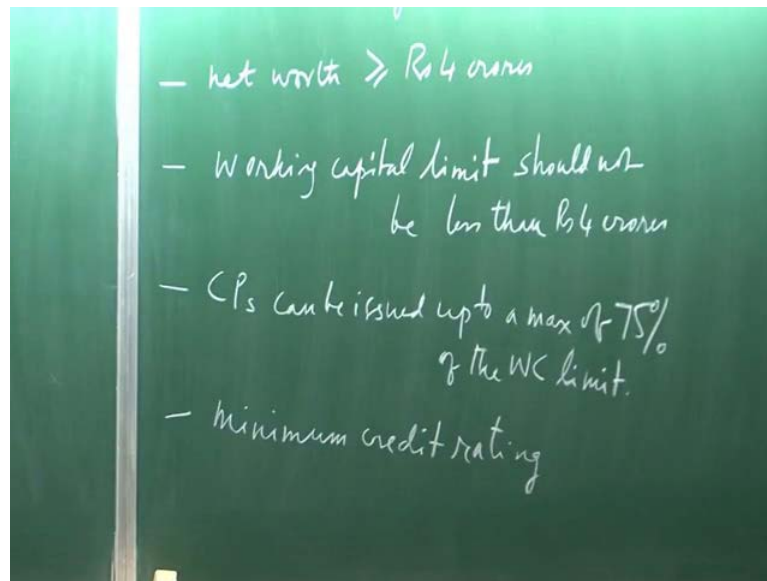 - net worth ≥ Rs 4 crores
- Working capital limit should not
be less than Rs 4 crores
- CPs can be issued upto a max of 75%
of the WC limit.
- Minimum credit rating